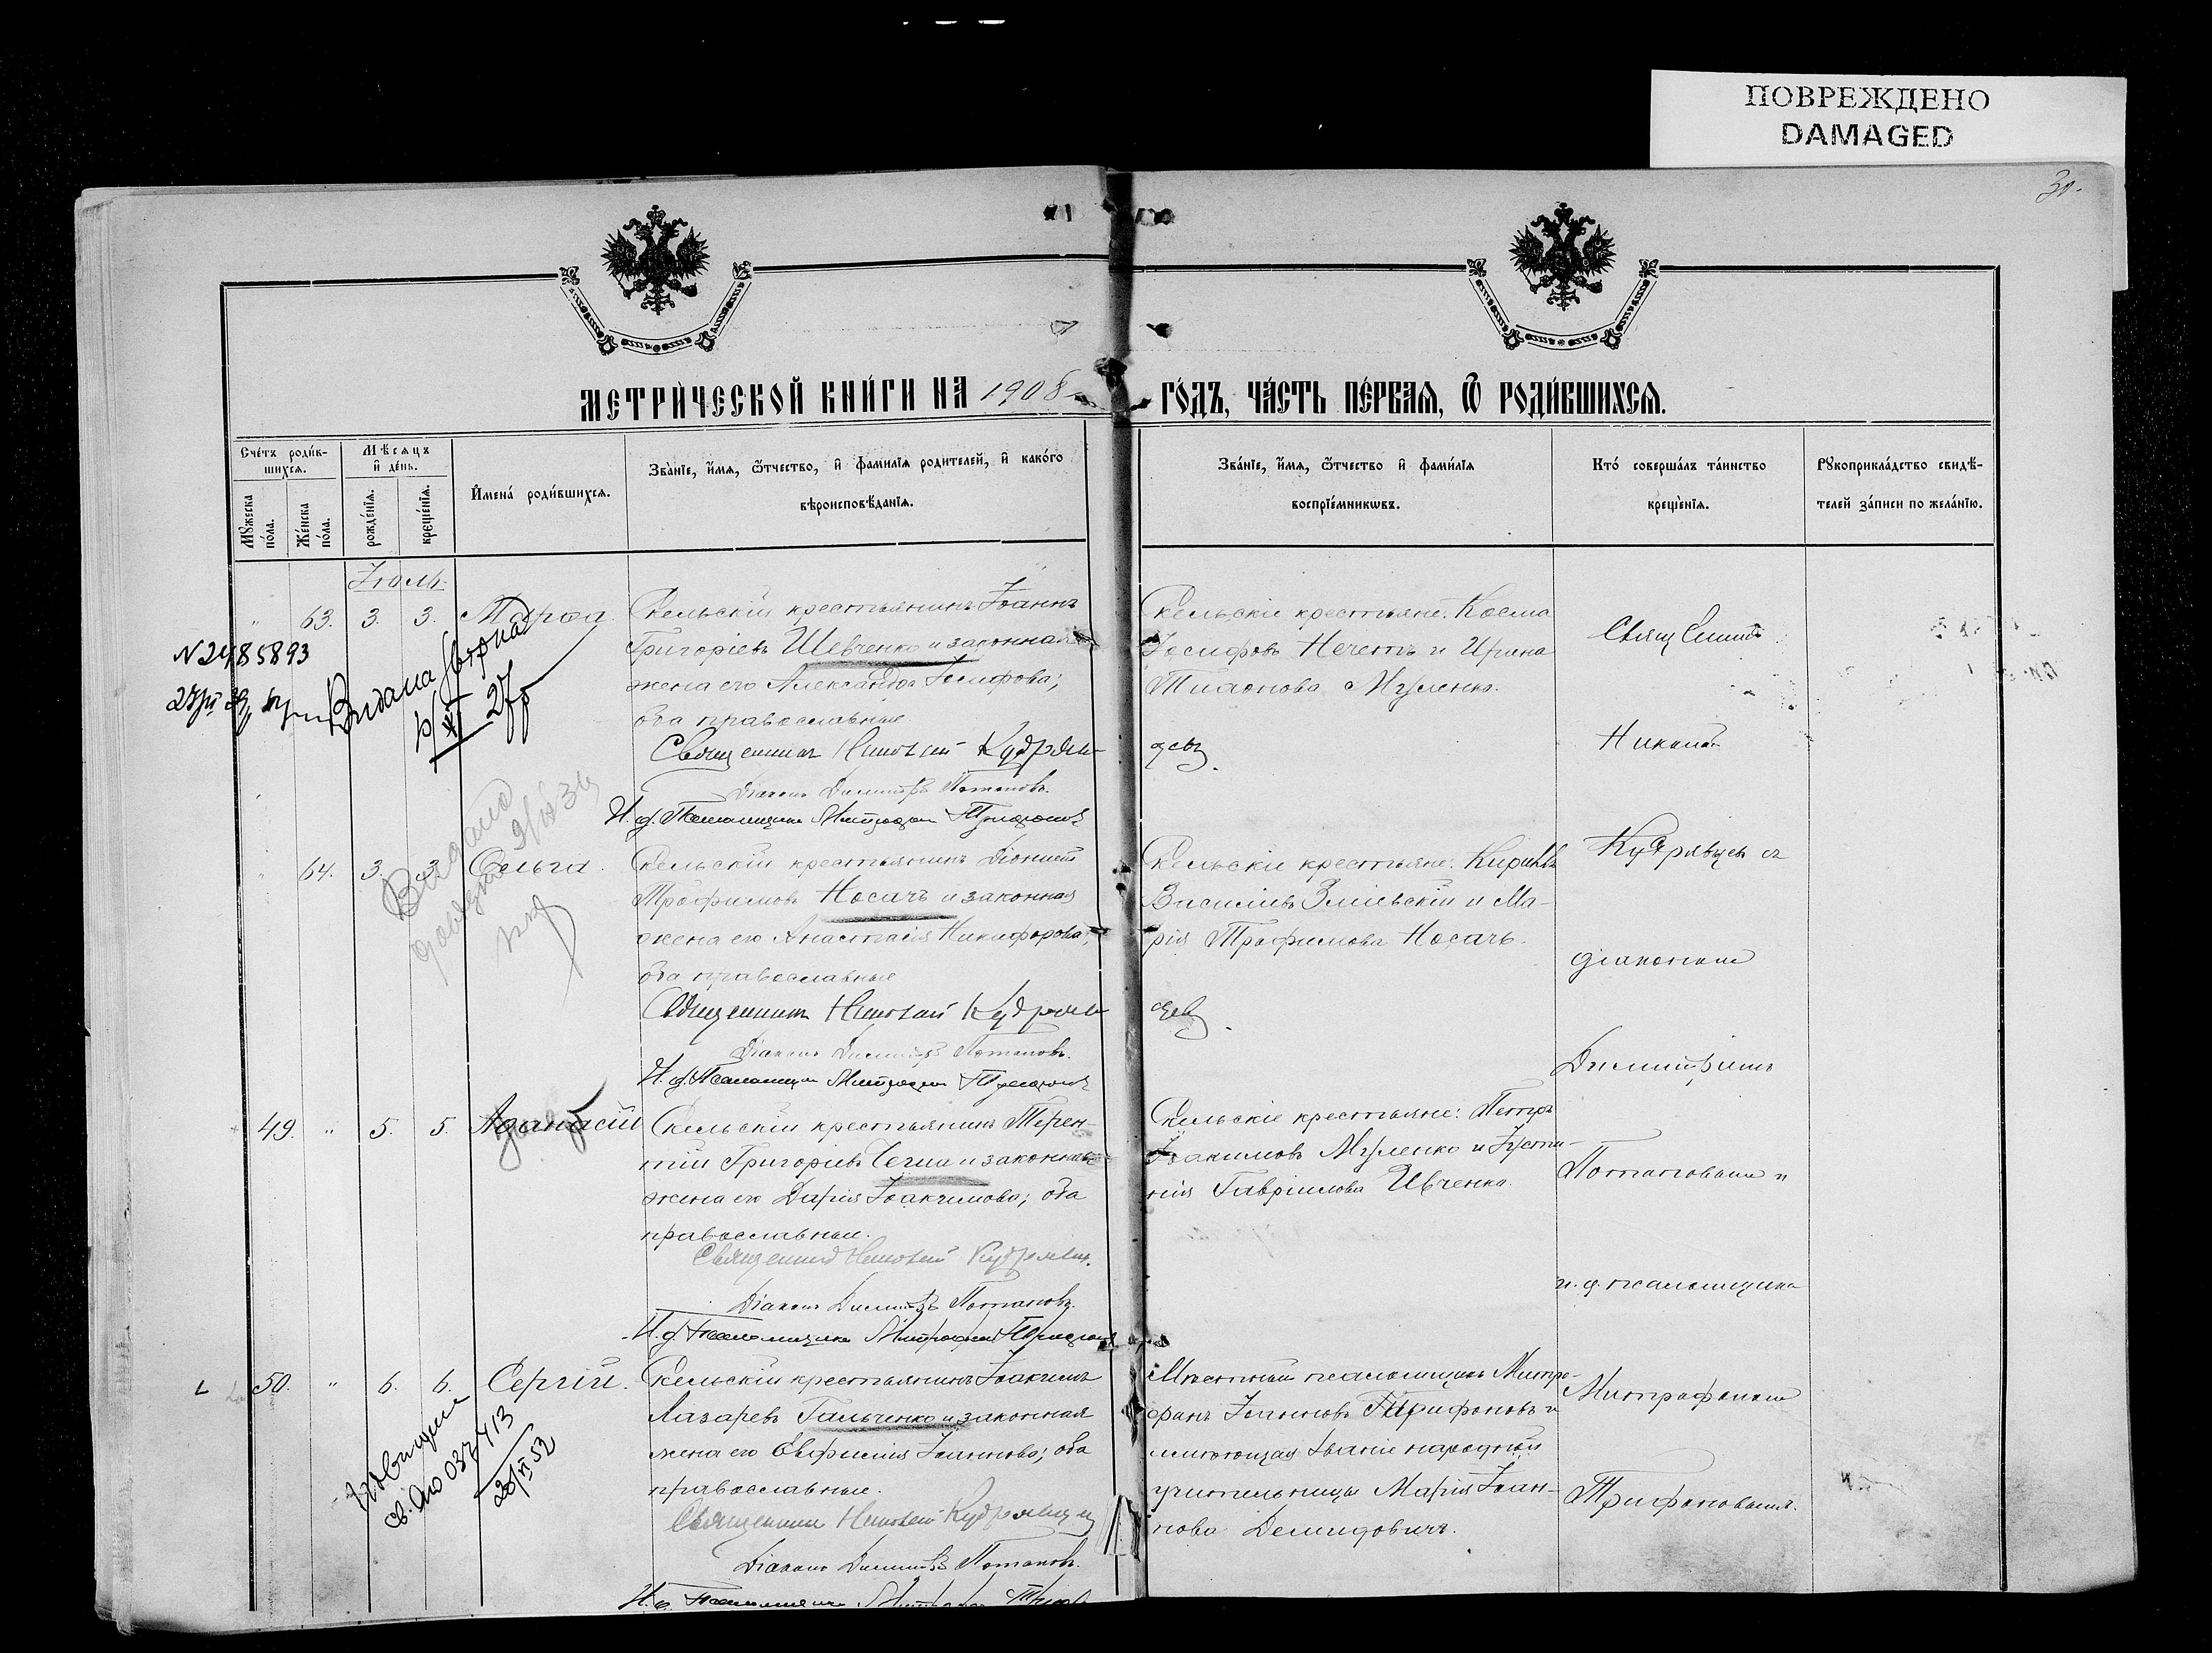 ПОВРЕЖДЕНО
DAMAGED
30.
МЕТРИ́ЧЕСКОЙ КНИ́ГИ НА 1908 ГО́ДЪ, ЧА́СТЬ ПЕ́РВАѦ, Ѿ РОДИ́ВШИХСѦ.
Сче́тъ роди́в-
шихсѧ.
Мꙋжеска по́ла.
Же́нска по́ла.
Мѣсѧцъ
и҆ де́нь.
рожде́нїѧ.
креще́нїѧ.
И҆мена́ роди́вшихсѧ.
Зва́нїе, и҆́мѧ, ѻ҆́тчество, и҆ фамилїѧ родителей, и҆ како́гѡ
вѣроисповѣ́данїѧ.
Зва́нїе, и҆́мѧ, ѻ҆́тчество и҆ фами́лїѧ
воспрїе́мникѡвъ.
Кто̀ соверша́лъ та́инство
креще́нїѧ.
Рꙋкоприкла́дство свидѣ́-
телей за́писи по жела́нїю.
Іюль.
" 63. 3. 3. Марѳа.
Скельскій крестьянинъ Іоаннъ
Григоріевъ Шевченко и законная
жена его Александра Іосифова;
оба православные
Священникъ Николай Кудрявцевъ.
Діаконъ Димитрій Потаповъ.
И. д. Псаломщика Митрофанъ Трифоновъ
Скельскіе крестьяне: Косма
Іосифовъ Нечетъ и Ирина
Мусенко.
N 2485893
Видана
27
" 64. 3. 3. Ольга.
Скельскій крестьянинъ Діонисій
Трофимовъ Носачъ и законная
жена его Анастасія Никифорова;
оба православные
Священникъ Николай Кудрявцевъ.
Діаконъ Димитрій Потаповъ.
И. д. Псаломщика Митрофанъ Трифоновъ
Скельскіе крестьяне: Кириллъ
Василіевъ Зміевскій и Ма-
рія Трофимова Носачъ.
Видано
49. " 5. 5. Аѳанасій
Скельскій крестьянинъ Терен-
тій Григоріевъ и законная
жена его Дарія Іоакимова; оба
православные.
Священникъ Николай Кудрявцевъ.
Діаконъ Димитрій Потаповъ.
И. д. Псаломщика Митрофанъ Трифоновъ
Скельскіе крестьяне: Петръ
Іоакимовъ Мусенко и Іусти-
нія Гавріилова Ивченко.
50. " 6. 6. Сергій.
Скельскій крестьянинъ Іоакимъ
Лазаревъ Гальченко и законная
жена его Евфимія Іоаннова; оба
православные.
Священникъ Николай Кудрявцевъ
Діаконъ Димитрій Потаповъ.
И. д. Псаломщика Митрофанъ Трифоновъ
Мѣстный псаломщикъ Митро-
фанъ Іоанновъ Трифоновъ и
имѣющая званіе народной
учительницы Марія Іоан-
нова Демидовичъ.
037413
52
Свящ.
Николай
Кудрявцевъ съ
діакономъ
Димитріемъ
Потаповымъ и
и. д. псаломщика
Митрофаномъ
Трифоновымъ.